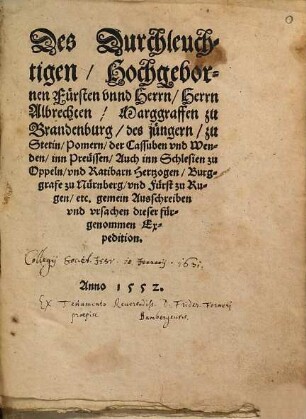 Des Durchleuch-
tigen / Hochgebor-
nen Fürsten vnnd Herrn / Herrn
Albrechten / Marggraffen zu
Brandenburg / des jüngern / zu
Stetin / Pomern / der Cassuben vnd Wen-
den / inn Preüssen / Auch inn Schlesien zu
Oppeln / vnd Ratibarn Hertzogen / Burg-
graffe zu Nürnberg / vnd Fürst zu Ru-
gen / etc. gemein Ausschreiben
vnd vrsachen dieser für-
genommen Ex-
pedition.
Collegij Societ. Jesu 1631.
Anno 1552.
Ex Testamento Reverendiss. D. Frider. Forneri
Bambergensis.